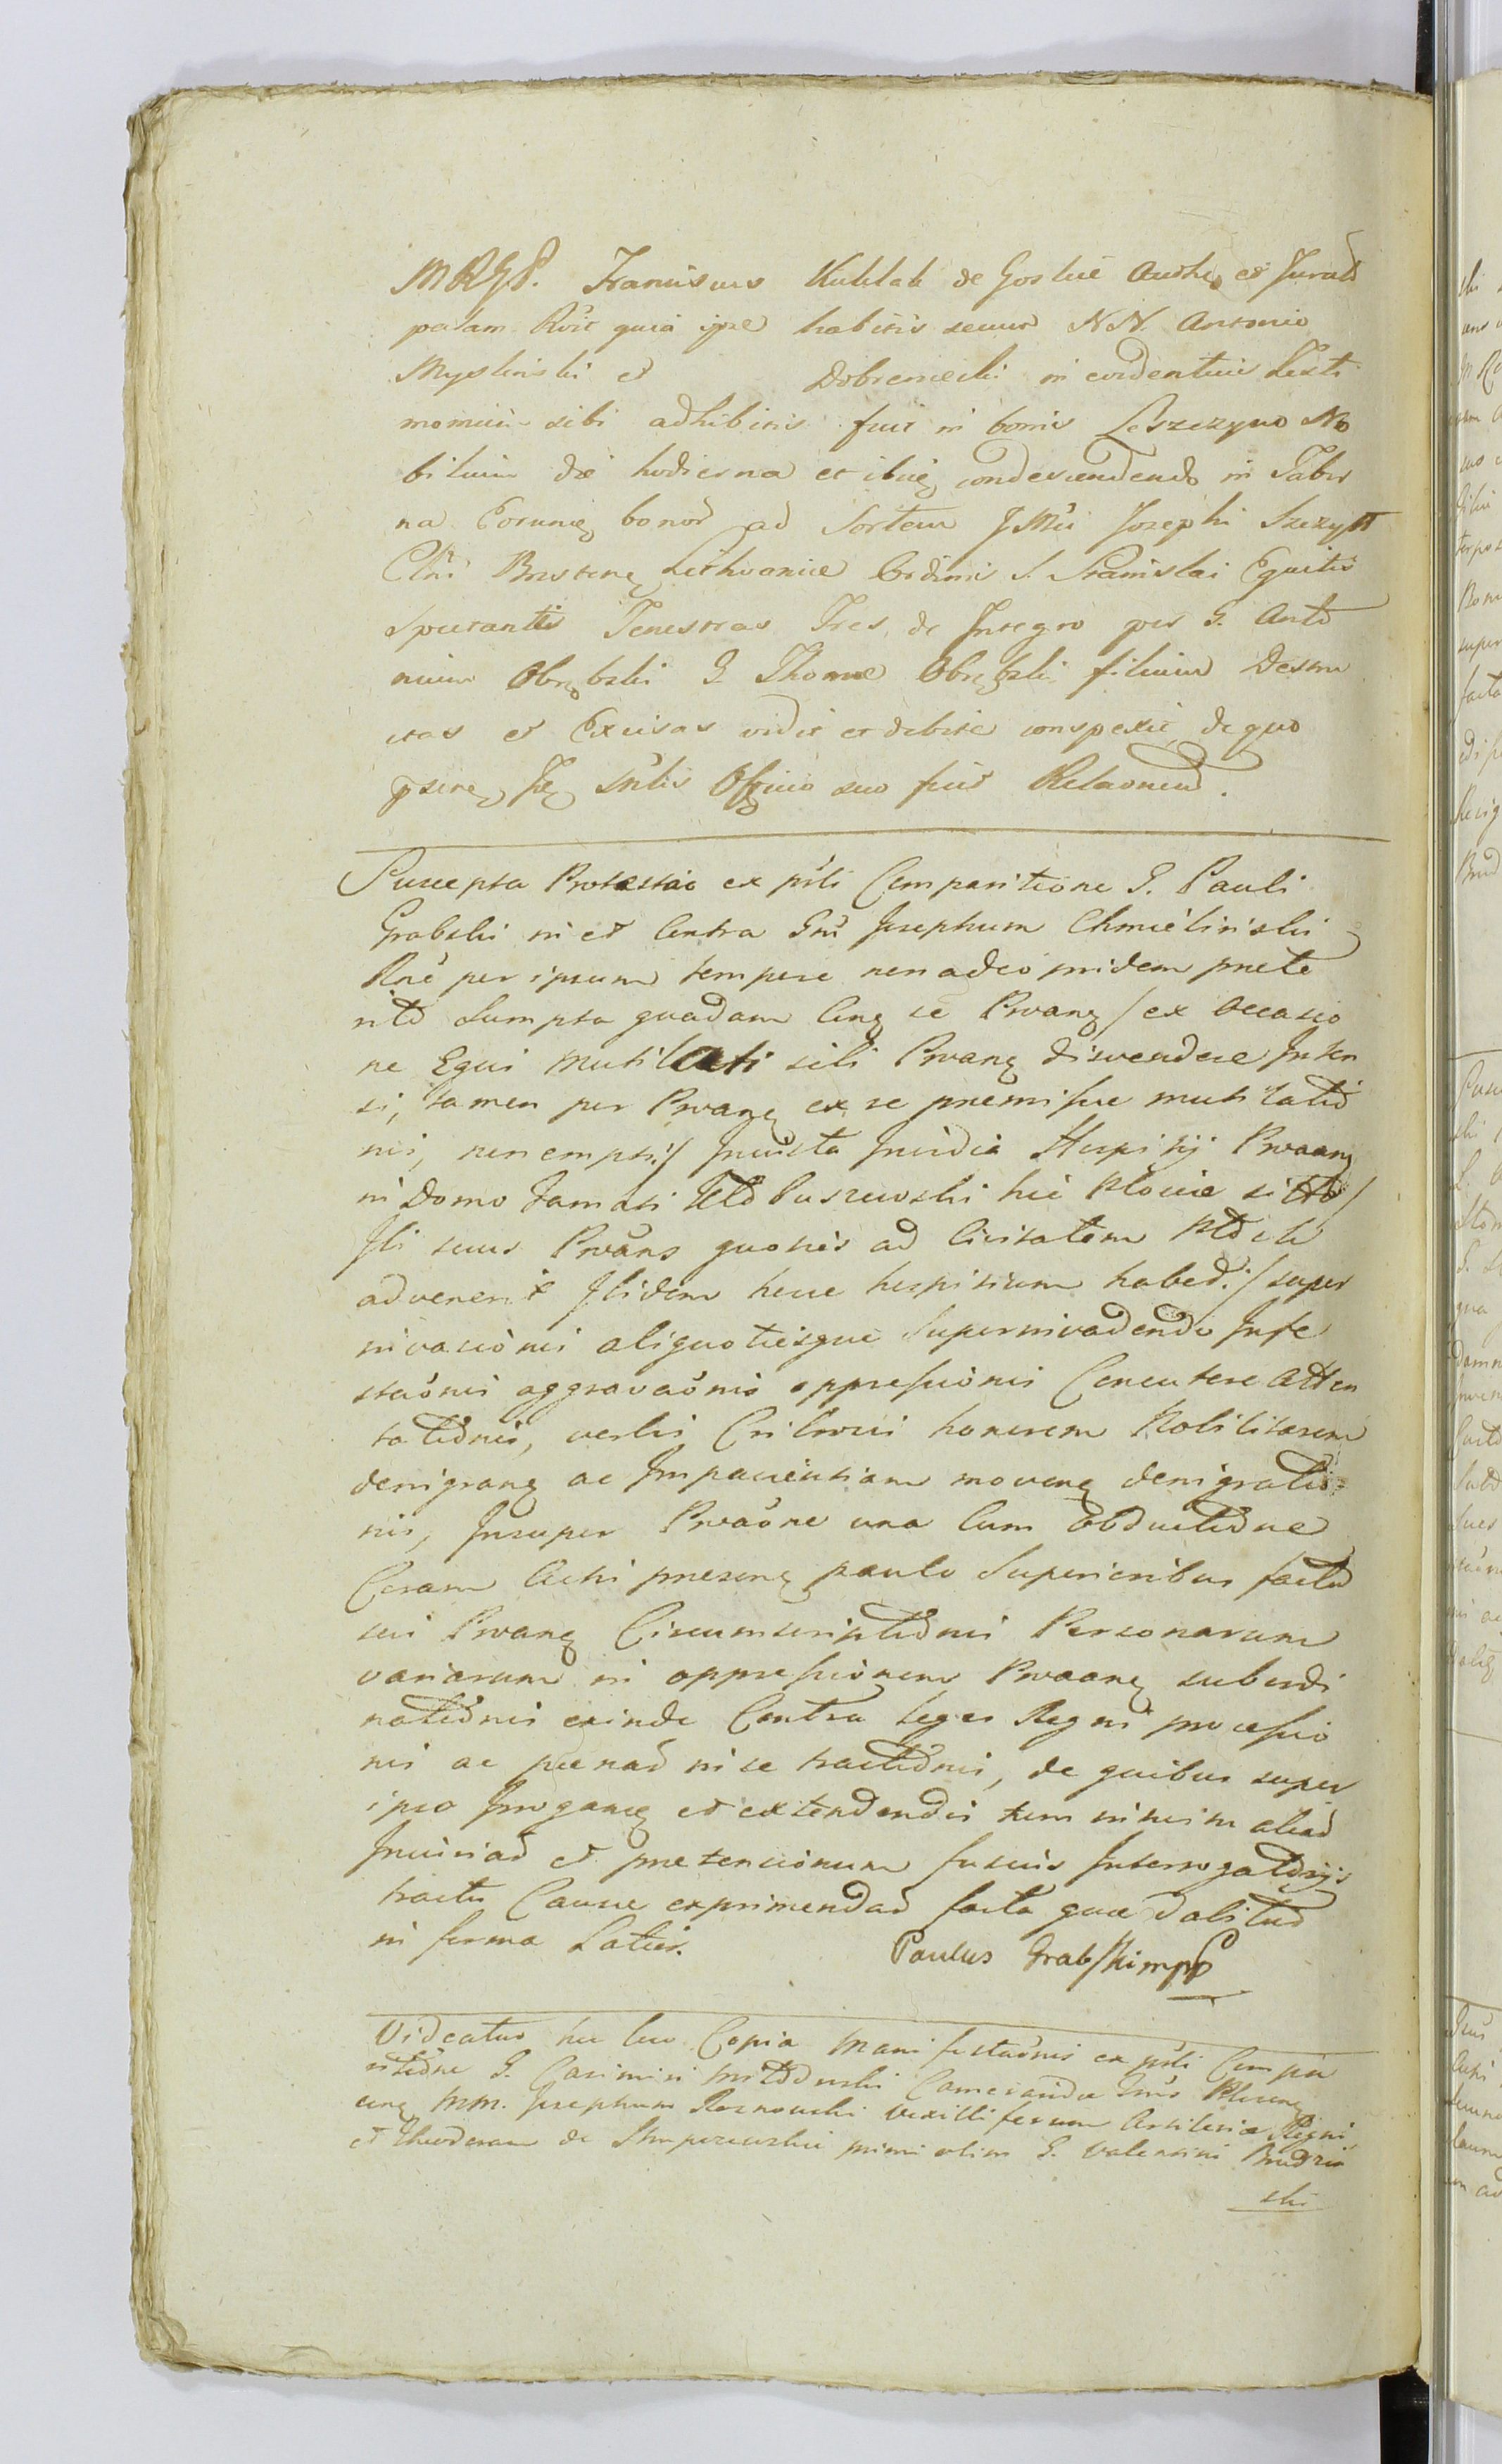 MRGP. Franciscus Kuklak de Goslice Authen et Jurad
palam Rvit quia ipse habitis secum NN. Antonio
Myslinski et Dobrzeniecki in evidentius Testi
monium sibi adhibitis fuit in bonis Leszczyno No
bilium die hodierna et ibiq condescendendo in Taber
na Eorunq bonor ad Sortem JMci Josephi Szczytt
Clni Brestenq Lithvaniæ Ordinis S. Stanislai Equitis
Spectantis Fenestras Tres, de Integro per G. Anto
nium Obrębski G. Thomæ Obrębski filium Destru
ctas et Excisas vidit et debite conspexit, de quo
psens Offciio suo fecit Relaonem.
Suscepta Protestaio ex psli Comparitione G. Pauli
Grabski in et Contra Gnm Josephum Chmielinski
Rne per ipsum tempore non adeo pridem præte
rito Sumpta quadam Cinq se Pvang / ex occasio
ne Equi mutilati sibi Pvang disvendere Inten
si, tamen per Pvang ex se præmissæ mutilatio
nis, non empti:/ Injusta Invidia Hospitij Pvaang
in Domo Famati Puszewski hic Plociæ sitto/
Ibi suus Pvans quoties ad Civitatem
advenerit Ibidem hocce hospitium habed:/ super
invasionis aliquotiesque Superinvadendo Infe
staonis aggravaonis oppressionis Concutere Atten
tationis, verbis Cribrosis honorem Nobilitarem
denigranq ac Impatientiam movenq denigratio
nis, Insuper Pvaone una Cum Obductione
Coram Actis præsenq paulo Superioribus facto
sui Pvang Circumscriptionis Personarum
variarum in oppressionem Pvaang subordi
nationis exinde Contra leges Regni processio
nis ac pœnad in se tractionis, de quibus super
ipso Irrogang et extendendis tum nimim aliad
Injuriad et prætensionum fusius Interrogatorijs
tractu Causæ exprimendad facta quæ dabitur
in forma Latiori. Paulus Grabski mpp
Videatur hic loco Copia Manifestaonis ex psli Compa
ritione G. Casimiri Camerarida Tris Plocenq
conq MM. Josephum Roznowski Vexilliferum Artileriæ Regni,
et Theodoram de primi olim G. Valentini Brudzin
ski